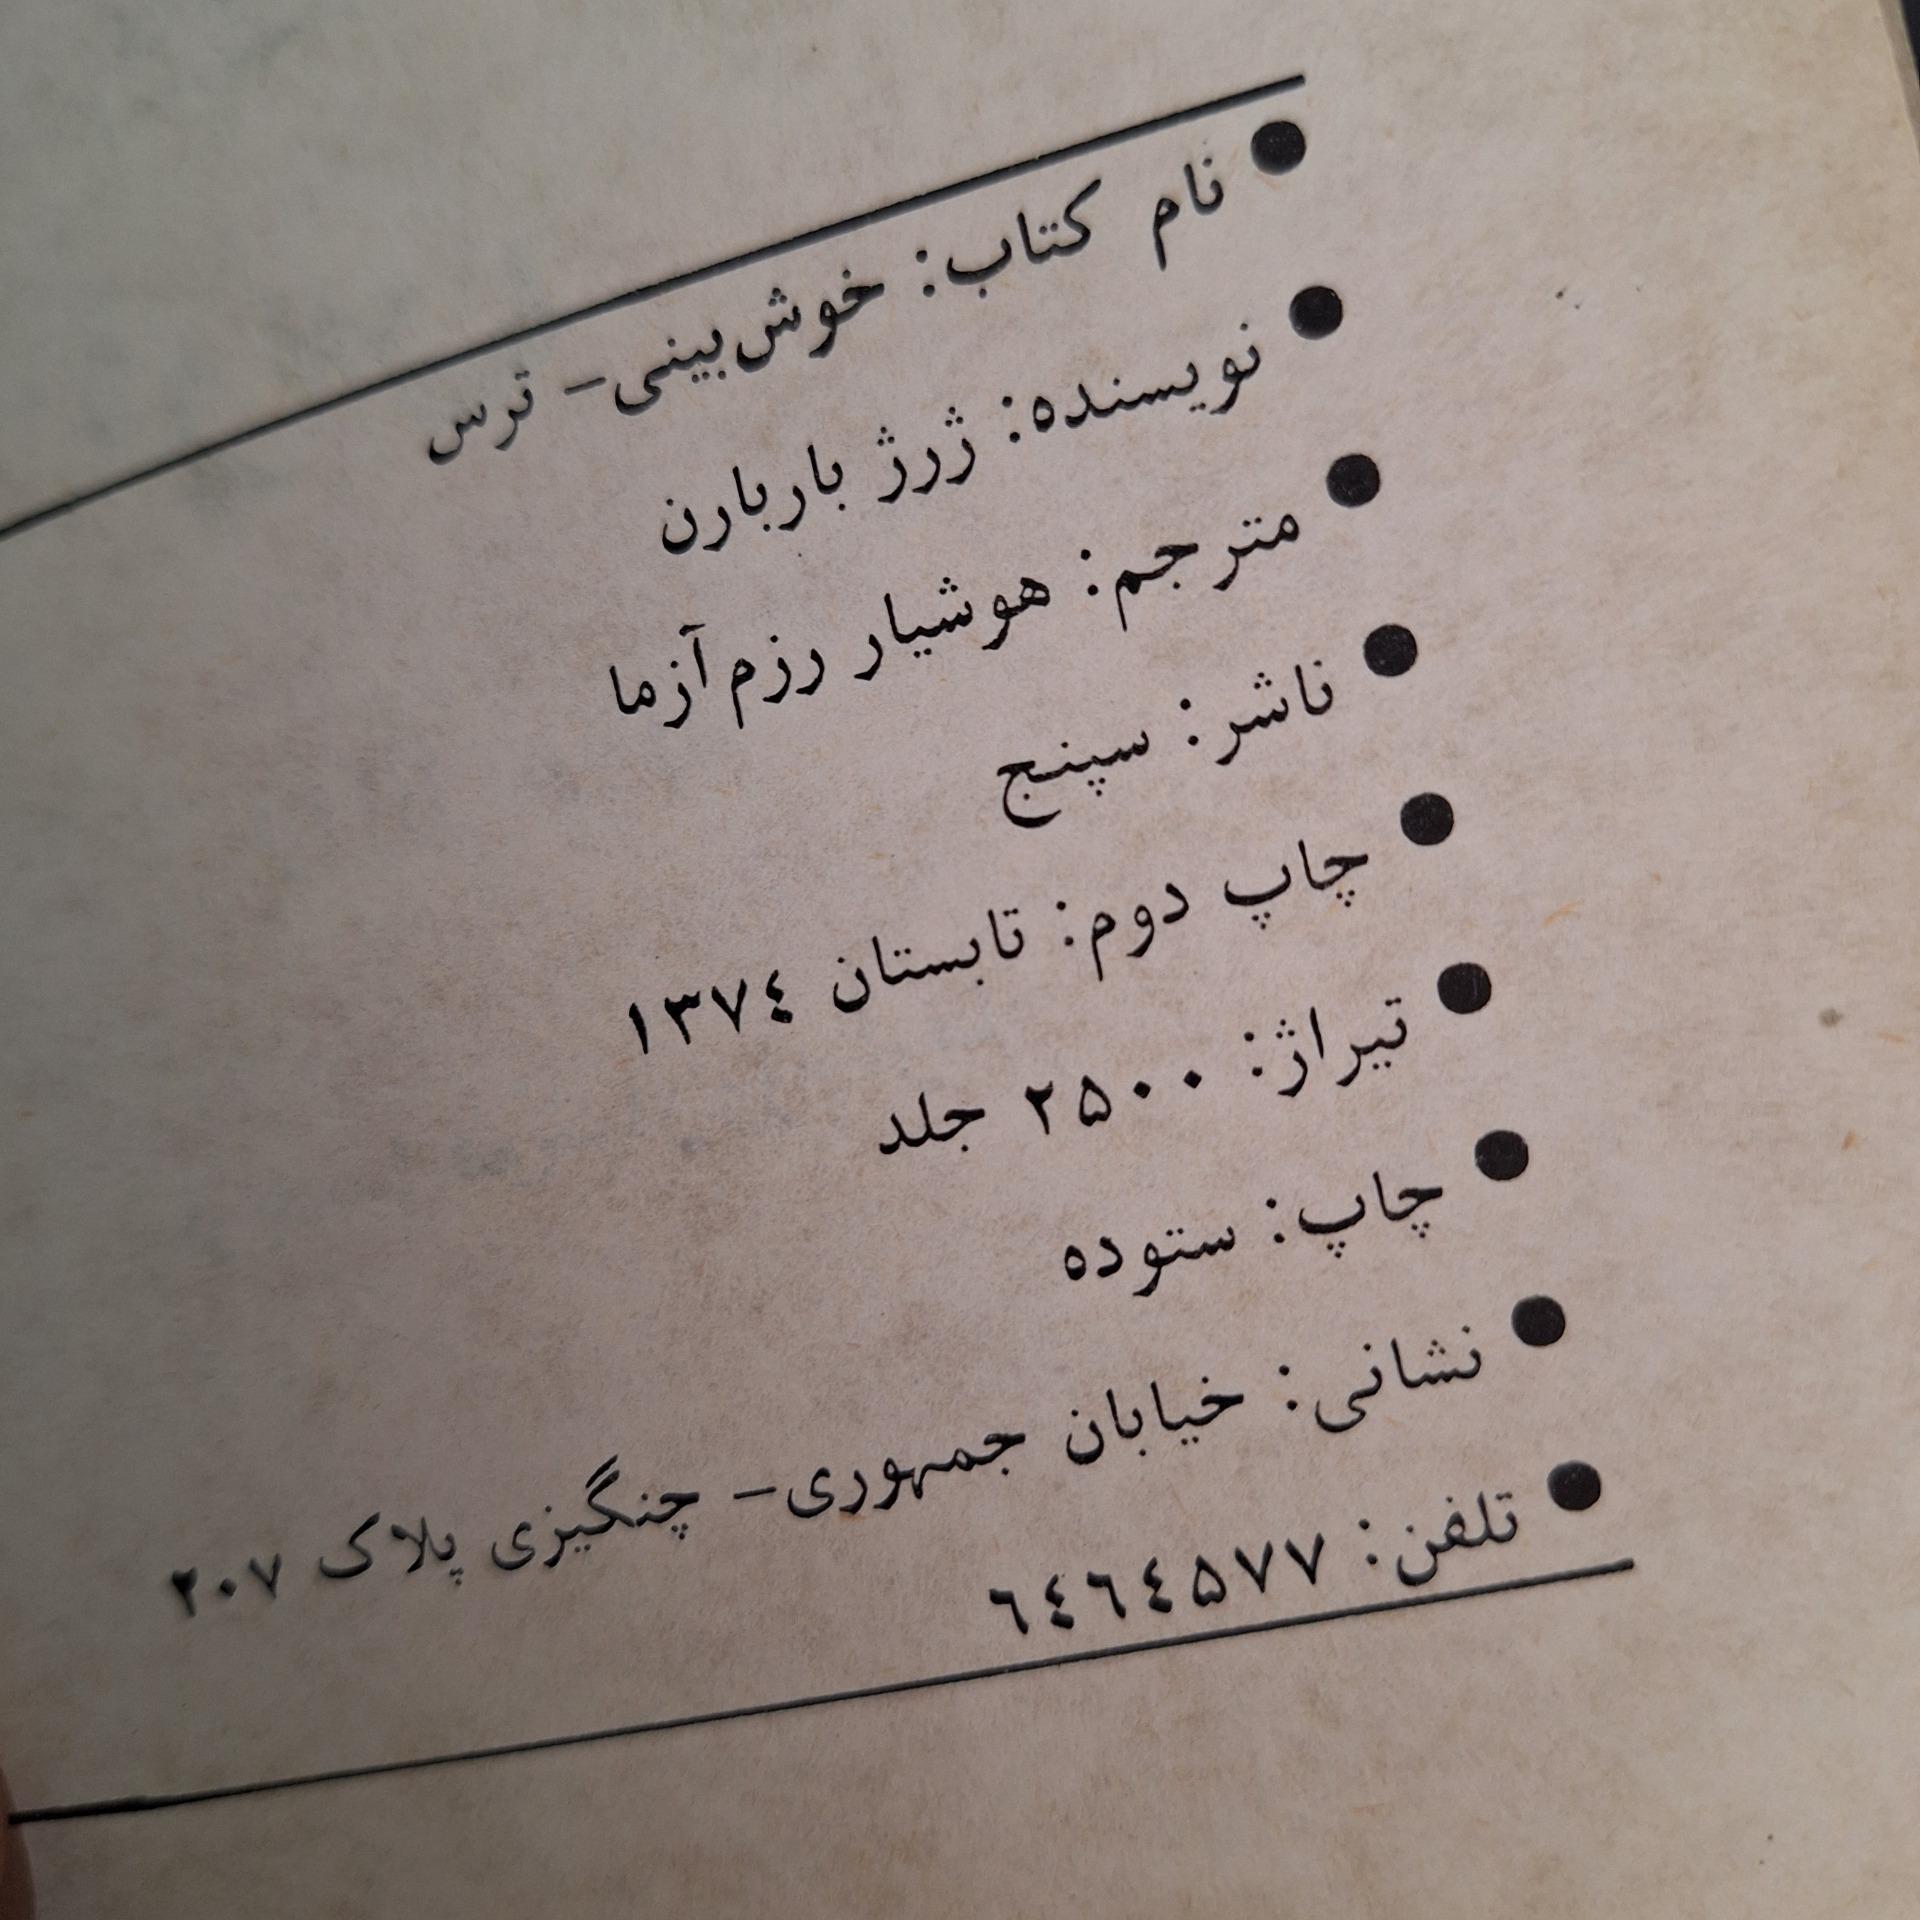 ● نام کتاب: خوش‌بینی- ترس
● نویسنده: ژرژ باربارن
● مترجم: هوشیار رزم‌آزما
● ناشر: سپنج
● چاپ دوم: تابستان ۱۳۷٤
● تیراژ: ۲۵۰۰ جلد
● چاپ: ستوده
● نشانی: خیابان جمهوری- چنگیزی پلاک ۲۰۷
● تلفن: ٦٤٦٤۵۷۷